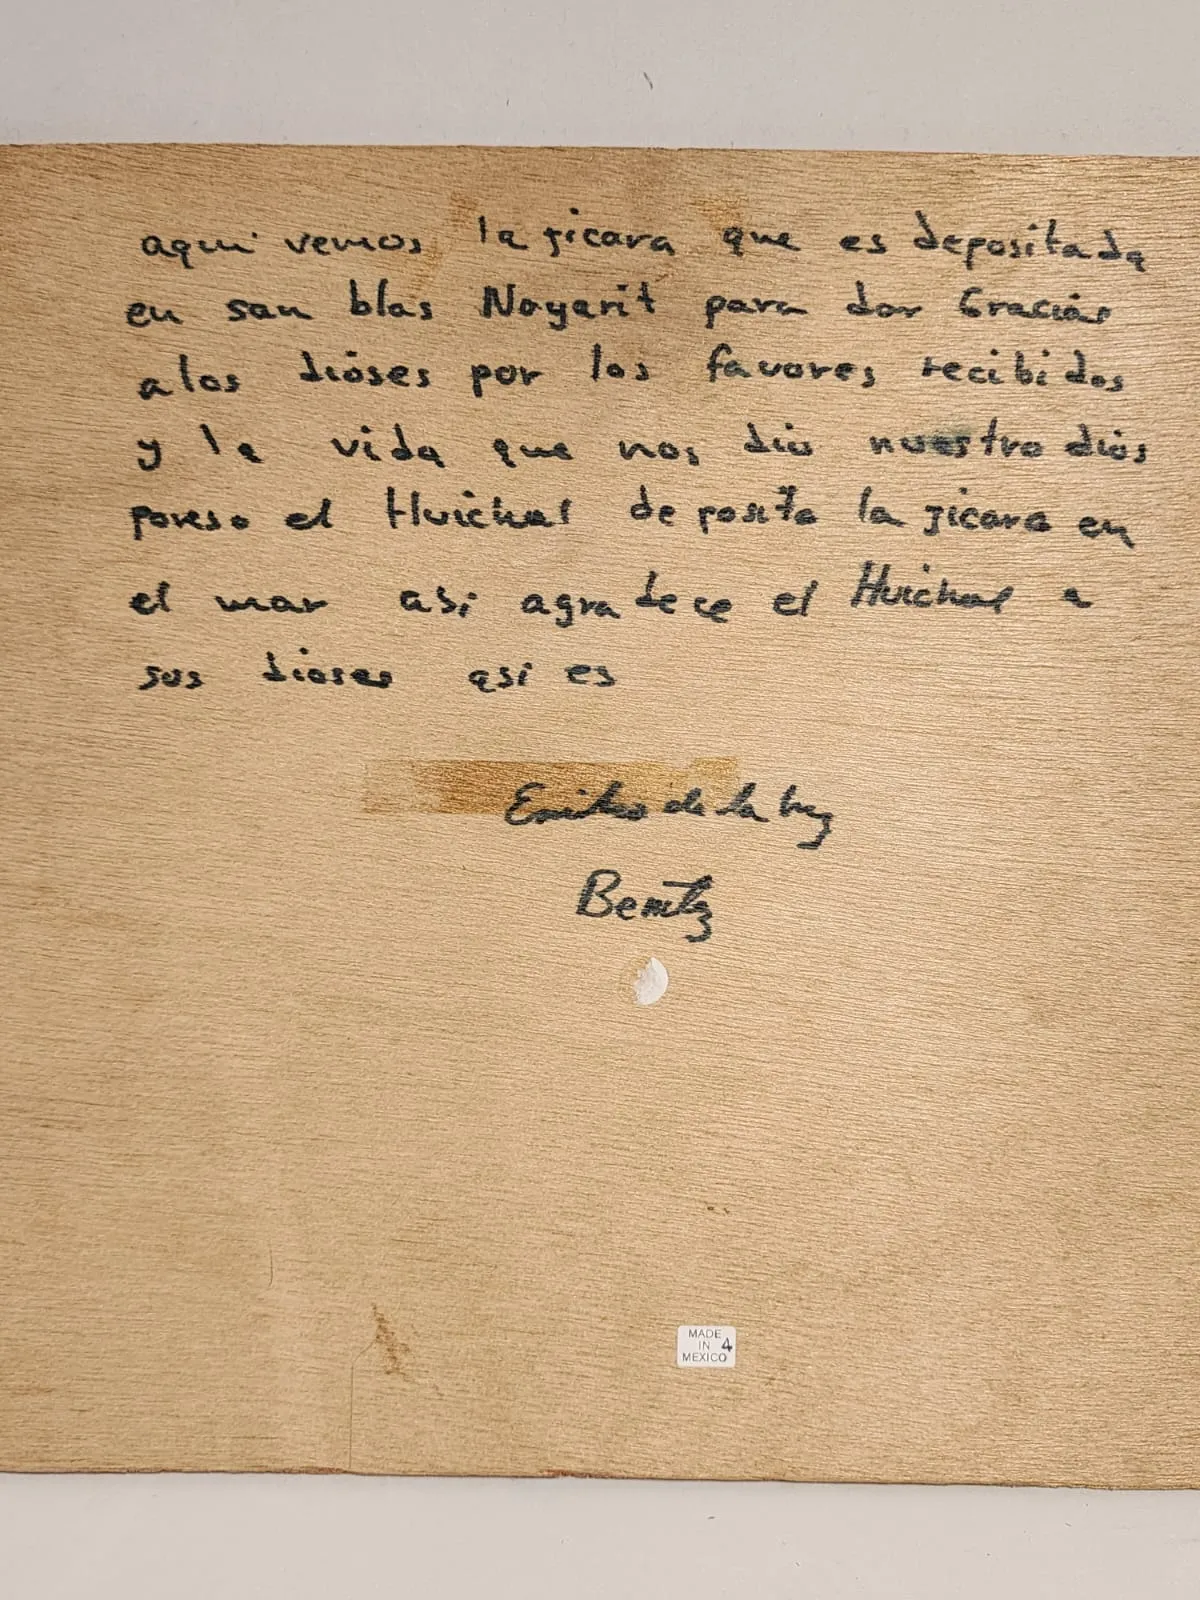 aqui vemos la jicara que es depositada
en san blas Nayarit para dar Gracias
a los dioses por los favores recibidos
y la vida que nos dio nuestro dios
poreso el Huichol deposita la jicara en
el mar asi agradece el Huichol a
sus dioses asi es
Emilio de la luz
Benitz
MADE
IN 4
MEXICO